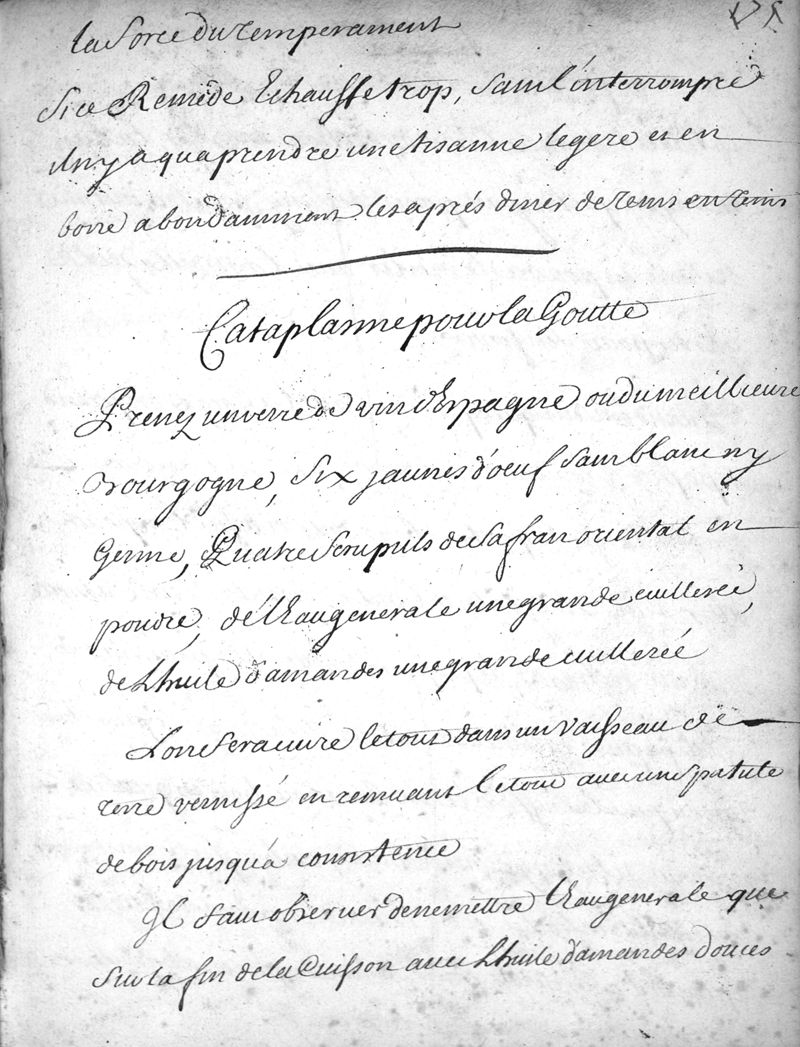 la force du temperament
Si ce Remede Echauffe trop, sans l'interrompre
il n'y a qu'a prendre une tisanne legere et en
boire abondamment les aprés diner de tems en tems
Cataplasme pour la Goutte
Prenez un verre de vin d'Espagne ou du meillieure
Bourgogne, six jaunes d'oeuf sans blanc ny
Germe, Quatre scrupuls de safran oriental en
poudre, de l'Eau generale une grande cuillereé,
de L'huile d'amandes une grande cuillereé
L'on fera cuire le tout dans un vaisseau de
terre vernissé en remuant le tout avec une spatule
de bois jusqu'a consistence
Il faut observer de ne mettre l'Eau generale que
sur la fin de la Cuisson avec L'huile d'amandes douces